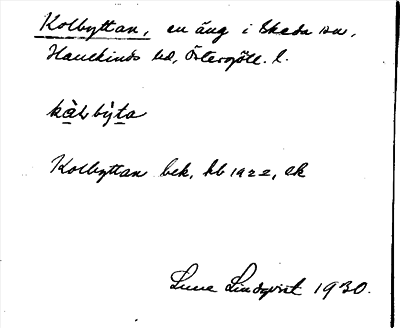 Kolbyttan, en äng i Skeda sn,
Hanekinds hd, Östergötl. l.
kàlbỳta
Kolbyttan bek, kb 1922, ek
Sune Lindqvist 1930.